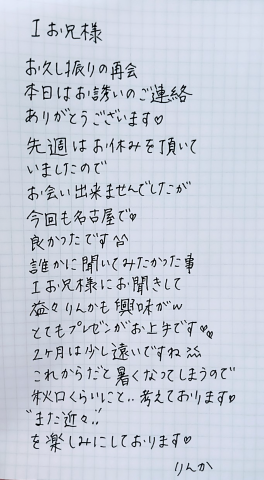 I お兄様
お久し振りの再会
本日はお誘いのご連絡
ありがとうございます♡
先週はお休みを頂いて
いましたので
お会い出来ませんでしたが
今回も名古屋で♡
良かったです^^
誰かに聞いてみたかった事
I お兄様にお聞きして
益々りんかも興味がw
とてもプレゼンがお上手です♡♡
2ヶ月は少し遠いですね
これからだと暑くなってしまうので
秋口くらいにと‥考えております♡
"また近々‥"
を楽しみにしております♡
りんか